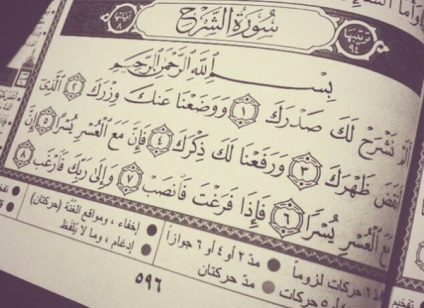 وأما
ترتيبها ٩٤ سُورَةُ الشَّرْحِ آياتها ٨
بِسْمِ اللَّهِ الرَّحْمَٰنِ الرَّحِيمِ
أَلَمْ نَشْرَحْ لَكَ صَدْرَكَ ١ وَوَضَعْنَا عَنكَ وِزْرَكَ ٢ الَّذِي
أَنقَضَ ظَهْرَكَ ٣ وَرَفَعْنَا لَكَ ذِكْرَكَ ٤ فَإِنَّ مَعَ الْعُسْرِ يُسْرًا ٥ إِنَّ
مَعَ الْعُسْرِ يُسْرًا ٦ فَإِذَا فَرَغْتَ فَانصَبْ ٧ وَإِلَىٰ رَبِّكَ فَارْغَب ٨
حركات لزوما مدّ ٢ أو ٤ أو ٦ جوازاً إخفاء، ومواقع الغُنَّة (حركتان)
حركات مدّ حركتان إدغام، وما لا يُلفَظ
تفخيم
٥٩٦